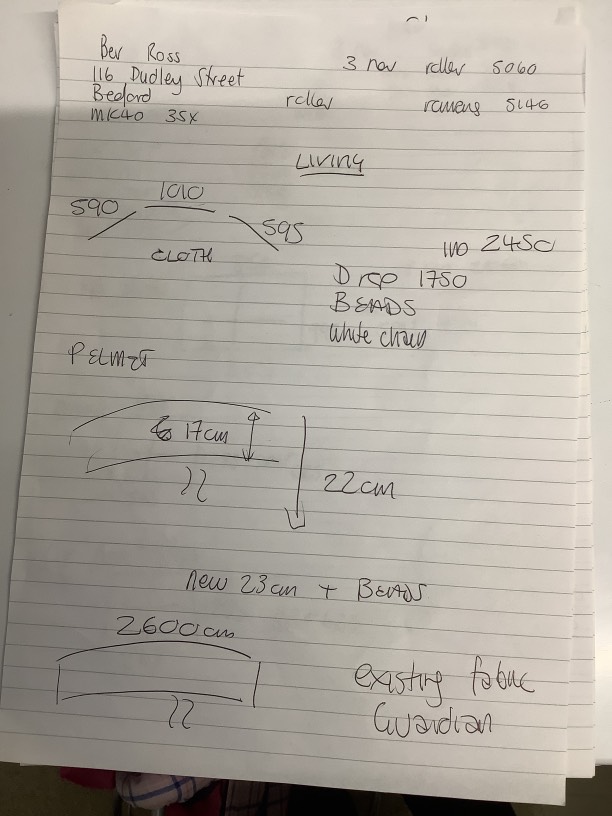 Bev Ross
3 nov roller 5060
116 Dudley Street
Bedford
roller romens 5146
MK40 3SX
LIVING
590 1010 595
CLOTH
2450
Drop 1750
BEADS
White chain
PELMET
17cm
22cm
new 23cm + BEADS
2600cm
existing fabric
Guardian